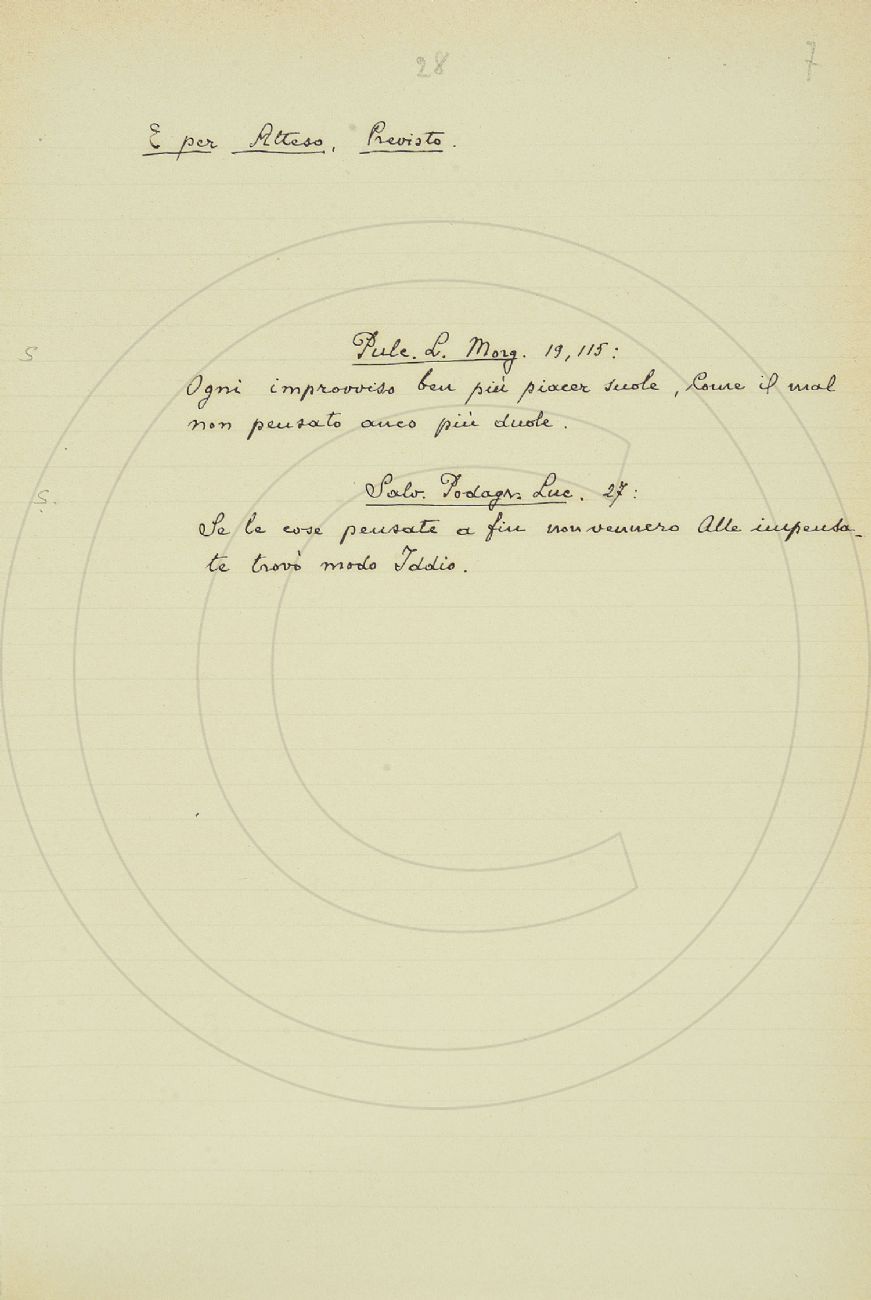 28 7
E per Atteso, Previsto.
S Pulc. L. Morg. 19, 115:
Ogni improvviso ben più piacer suole, Come il mal
non pensato anco più duole.
S. Salv. Podagr. Luc. 27:
Se le cose pensate a fin non vennero Alle impensa-
te trovò modo Iddio.